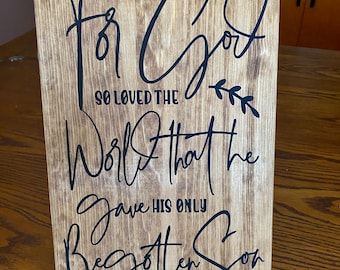 For God
SO LOVED THE
World that he
gave HIS ONLY
Begotten Son